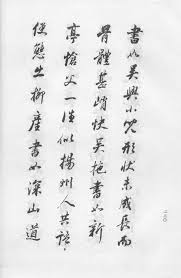 書如吳興小兒形狀未成長而
骨體甚峭快吳拖書如新
亭傖父一往似揚州人共語
便態出柳產書如深山道